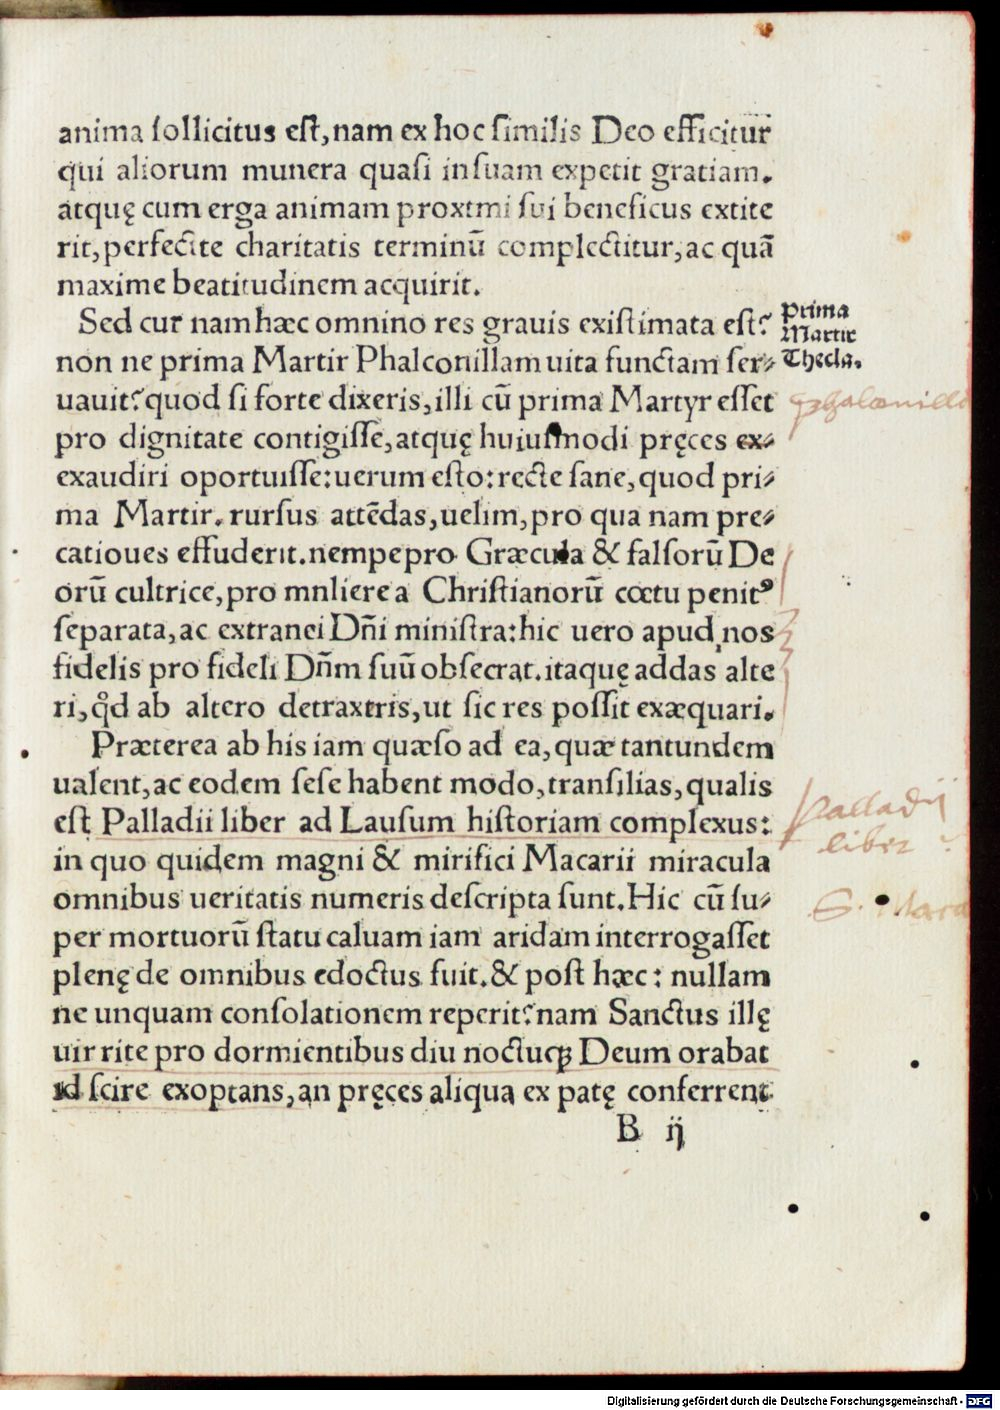 anima ſollicitus eſt,nam ex hoc ſimilis Deo efficitur
qui aliorum munera quaſi in ſuam expetit gratiam.
atquę cum erga animam proxtmi ſui beneficus extite
rit,perfecte charitatis terminū complectitur,ac quā
maxime beatitudinem acquirit.
Sed cur nam hæc omnino res grauis exiſtimata eſt?
non ne prima Martir Phalconillam uita functam ſer⸗
uauit?quod ſi forte dixeris,illi cū prima Martyr eſſet
pro dignitate contigiſſe,atquę huiuſmodi pręces ex⸗
exaudiri oportuiſſe:uerum eſto:recte ſane,quod pri⸗
ma Martir.rurſus attēdas,uelim,pro qua nam pre⸗
catioues effuderit.nempe pro Græcula & falſorū De
orū cultrice,pro mnliere a Chriſtianorū cœtu penitꝰ
ſeparata,ac extranei Dn̄i miniſtra:hic uero apud nos
fidelis pro fideli Dn̄m ſuū obſecrat.itaquę addas alte
ri,qd̊ ab altero detraxtris,ut ſic res poſſit exæquari.
Præterea ab his iam quæſo ad ea,quæ tantundem
ualent,ac eodem ſeſe habent modo,tranſilias,qualis
eſt Palladii liber ad Lauſum hiſtoriam complexus:
in quo quidem magni & mirifici Macarii miracula
omnibus ueritatis numeris deſcripta ſunt.Hic cū ſu⸗
per mortuorū ſtatu caluam iam aridam interrogaſſet
plenę de omnibus edoctus fuit.& poſt hæc: nullam
ne unquam conſolationem reperit?nam Sanctus illę
uir rite pro dormientibus diu noctuqꝫ Deum orabat
id ſcire exoptans,an pręces aliqua ex patę conferrent
B ij
Prima
Martir
Thecla.
phalconilla
Palladij
liber
S. Maca
Digitalisierung gefördert durch die Deutsche Forschungsgemeinschaft - DFG